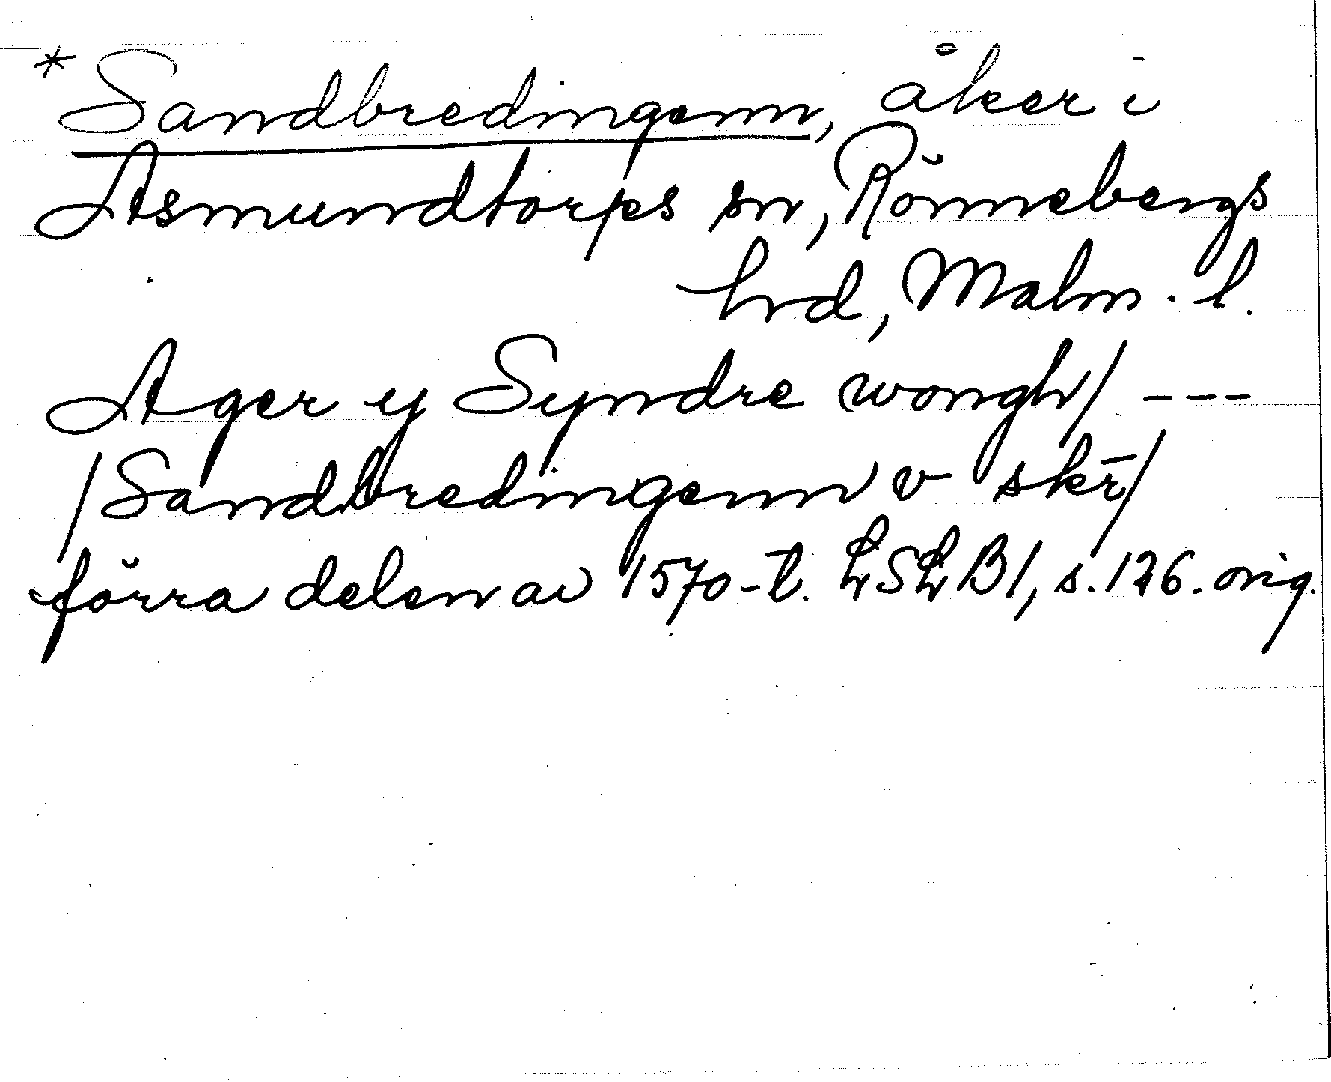 * Sandbredingenn, åker i
Asmundtorps sn, Rönnebergs
hrd, Malm. l.
Ager y Syndre wongh/ ---
/Sandbredingenn v skr̄/
förra delen av 1570-t. LSLB1, s. 126. orig.